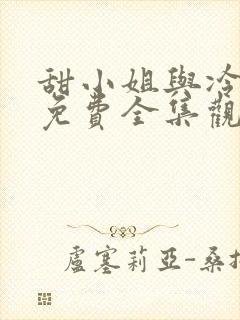 甜小姐與冷
免費全集觀
盧塞莉亞-桑